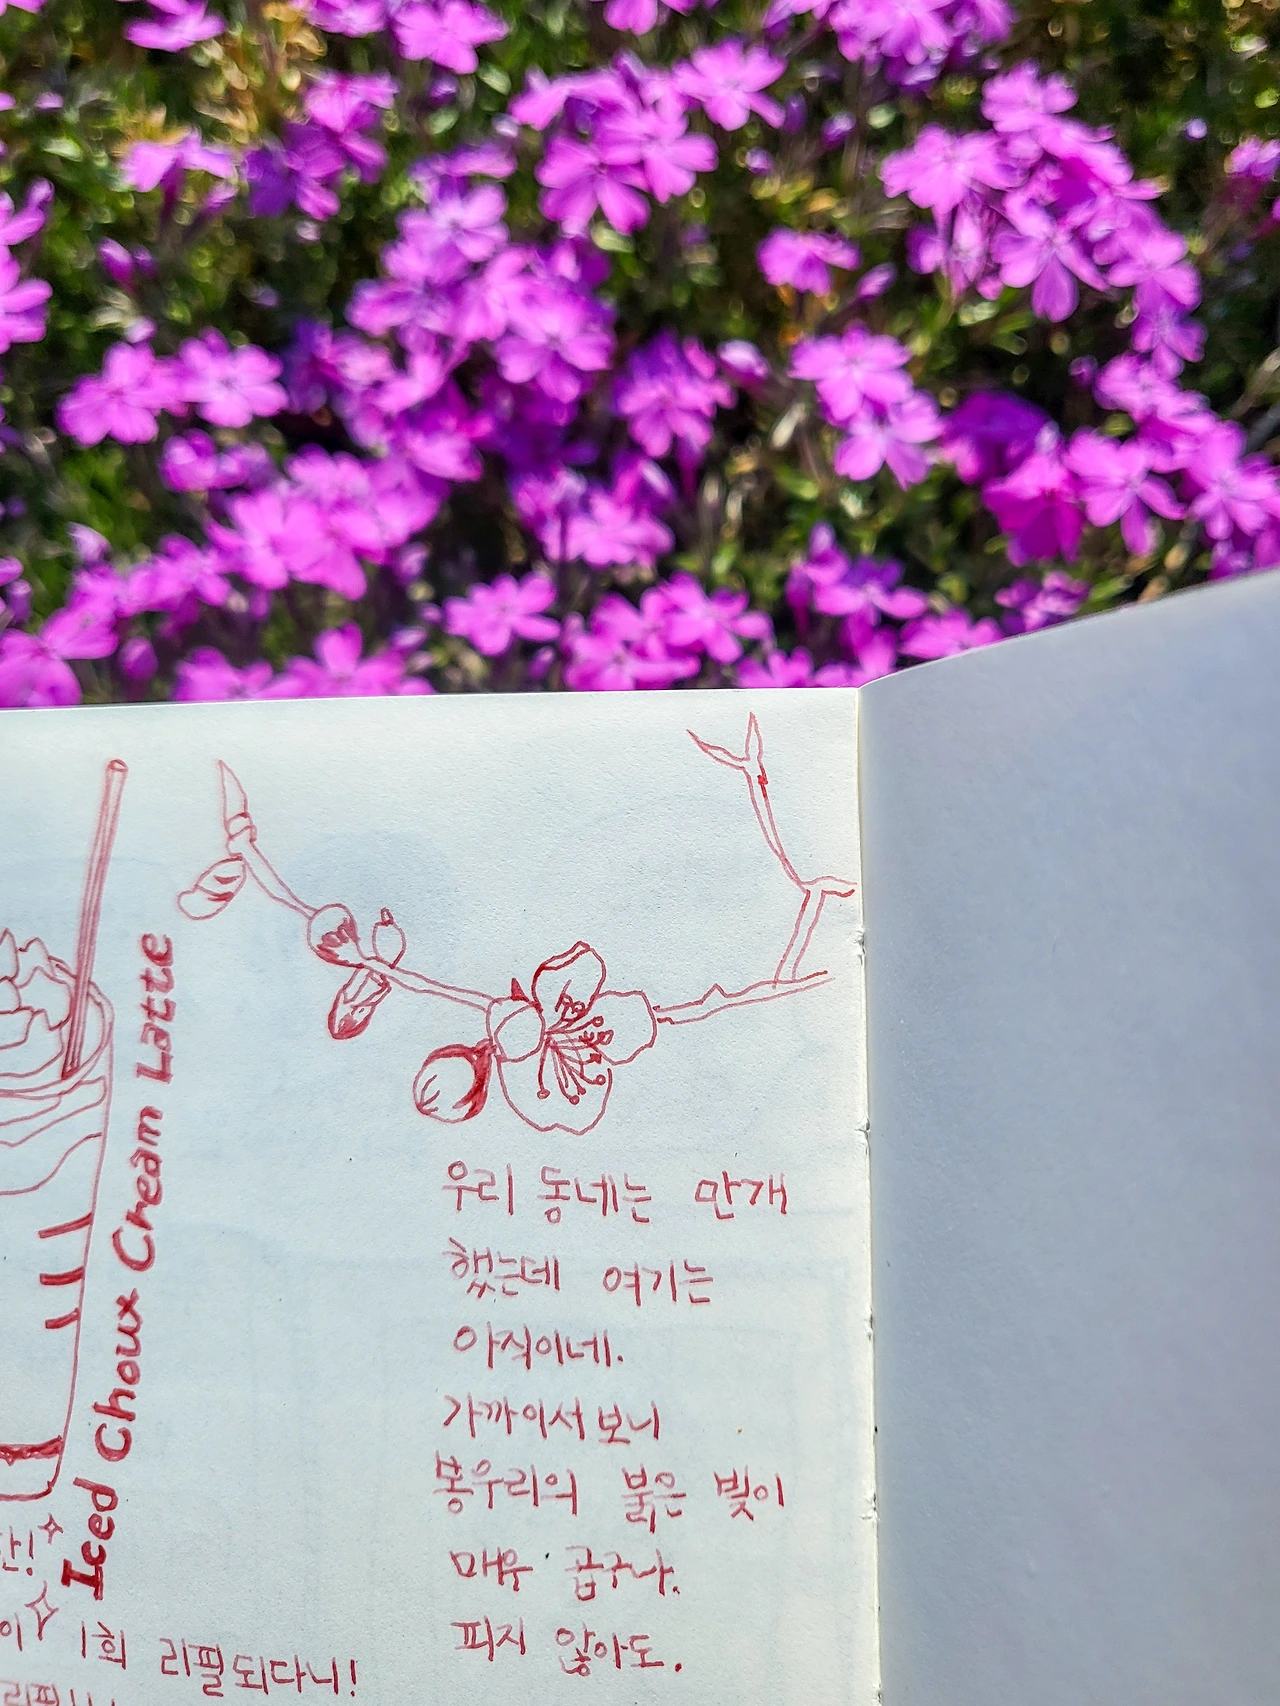 Iced Choux Cream Latte
우리 동네는 만개
했는데 여기는
아직이네.
가까이서 보니
봉우리의 붉은 빛이
매우 곱구나.
피지 않아도.
1회 리필되다니!